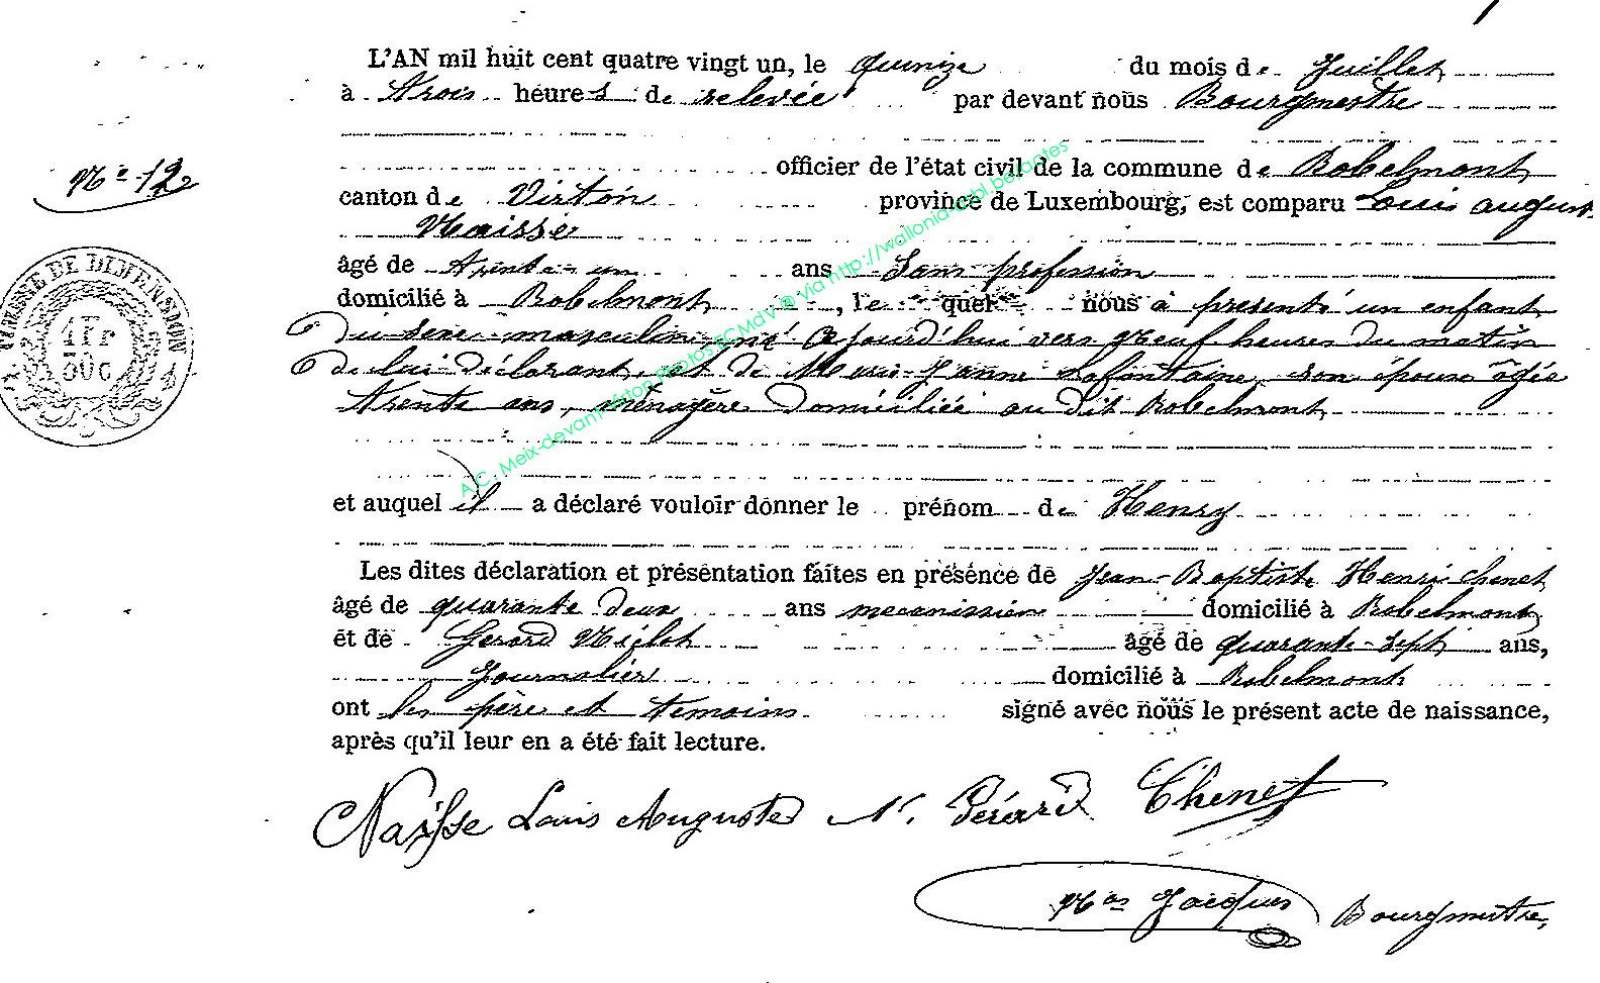 L'AN mil huit cent quatre vingt un, le quinze du mois de Juillet
à trois heures de relevée par devant nous Bourgmestre
officier de l'état civil de la commune de Robelmont
N° 12
canton de Virton province de Luxembourg, est comparu Louis august
Naisse
âgé de trente-un ans Sans profession
domicilié à Robelmont, lequel nous a presenté un enfant
du sexe masculin, né cejourd'hui vers neuf heures du matin
de lui déclarant, et de Marie-Jeanne Lafontaine, son épouse âgée
trente ans, ménagère domiciliée au dit Robelmont
et auquel il a déclaré vouloir donner le prénom de Henry
Les dites déclaration et présentation faites en présence de Jean-Baptiste Henri Chenet
âgé de quarante deux ans mecanissien domicilié à Robelmont
et de Gerard Niclot âgé de quarante-sept ans,
Journalier domicilié à Robelmont
ont les père et temoins signé avec nous le présent acte de naissance,
après qu'il leur en a été fait lecture.
Naisse Louis Auguste N. Gérard Chenet
Nas Jacques Bourgmestre,
DE DIMENSION
1 Fr
50 c
A.C. Meix-devant-Virton Photos ECMdV @ via http://wallonia-asbl.be/actes